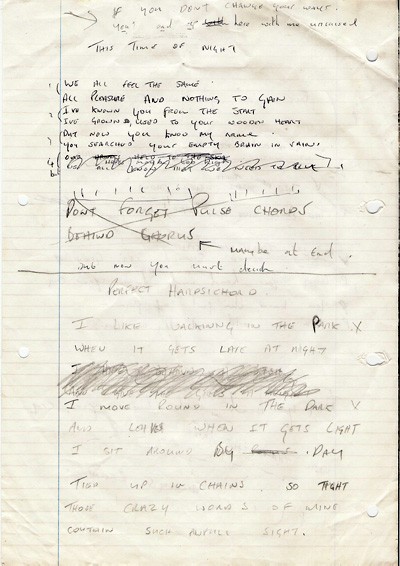 IF YOU DONT CHANGE your
Yea! and if here with me
THIS TIME OF NIGHT
1 WE ALL FEEL THE SAME
ALL PLEASURE AND NOTHING TO GAIN
2 I'VE KNOWN YOU FROM THE START
I'VE GROWN USED TO YOUR WOODEN HEART
BUT NOW YOU KNOW MY NAME
3 YOU SEARCHED YOUR EMPTY BRAIN IN VAIN
4
DONT FORGET PULSE CHORDS
BEHIND CHORUS
maybe at End.
but now you must decide
PERFECT HARPSICHORD
I LIKE WALKING IN THE PARK X
WHEN IT GETS LATE AT NIGHT
I MOVE ROUND IN THE DARK X
AND LEAVE WHEN IT GETS LIGHT
I SIT AROUND BY DAY
TIED UP IN CHAINS SO TIGHT
THOSE CRAZY WORDS OF MINE
CONTAIN SUCH SIGHT.